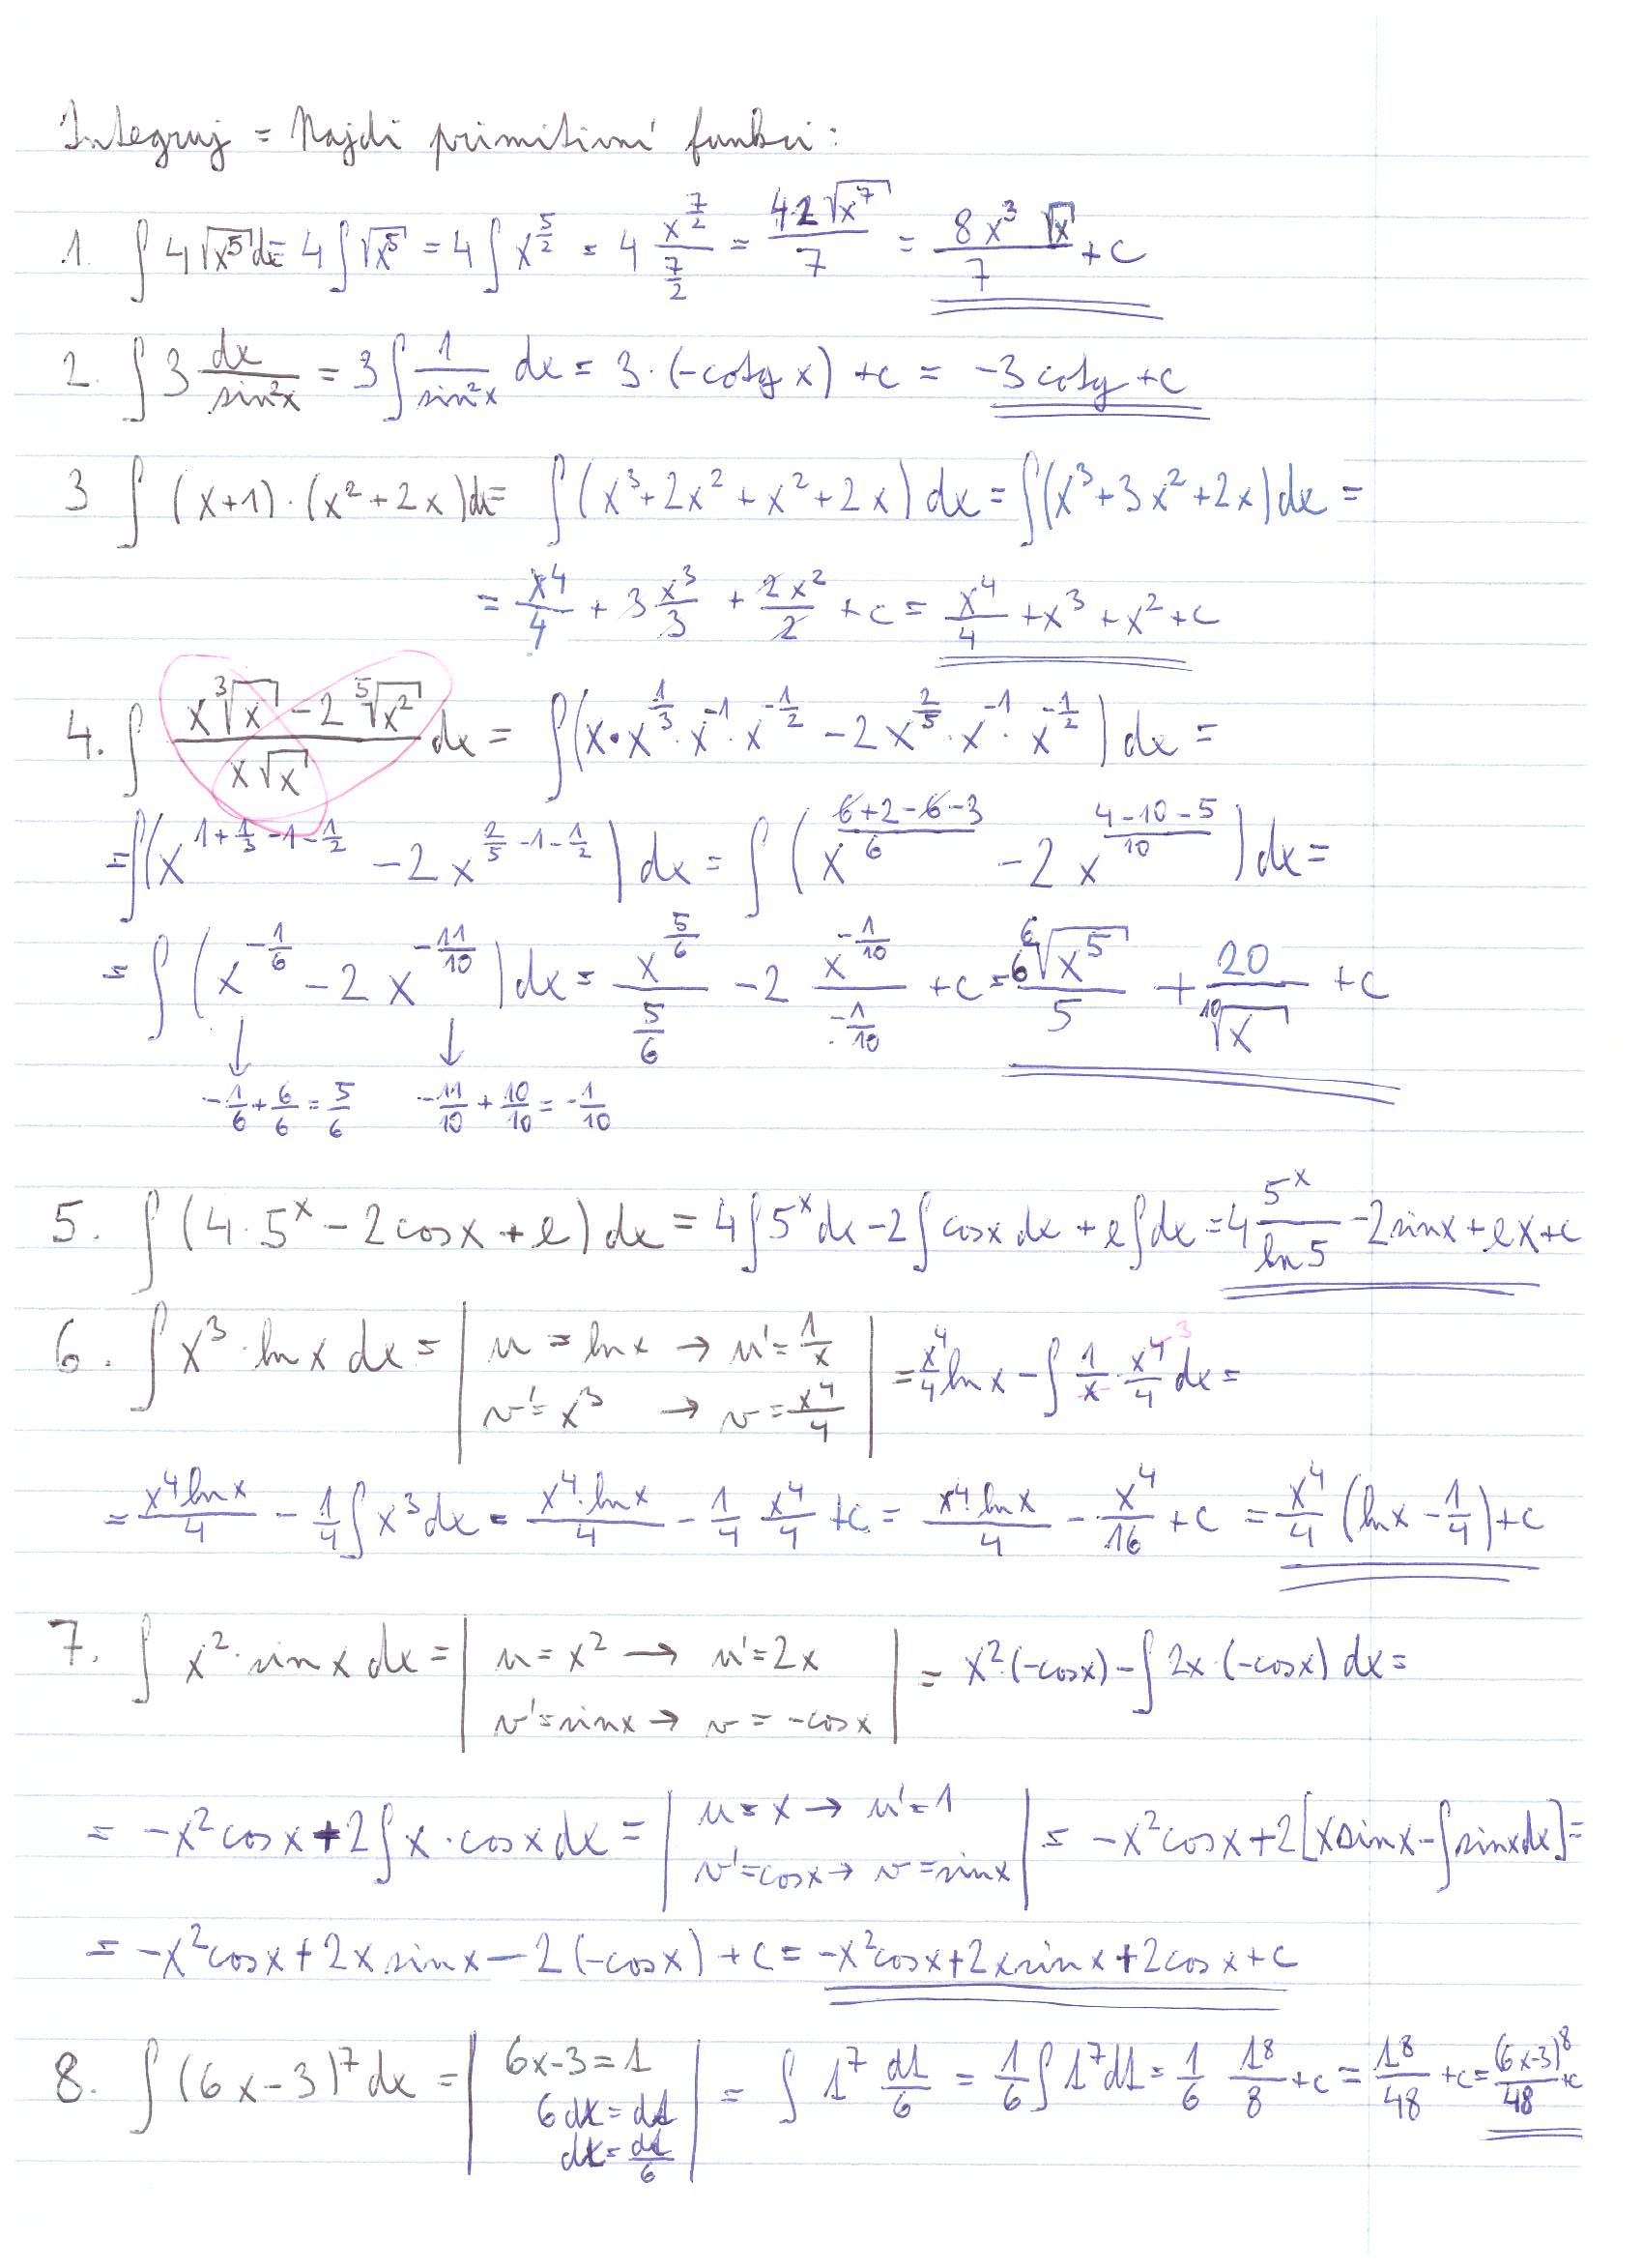 Integruj = Najdi primitivní funkci:
1. ∫ 4√x⁵ dx = 4∫√x⁵ = 4∫x^(5/2) = 4 x^(7/2)/(7/2) = 4·2√x⁷/7 = 8x³√x/7 + c
2. ∫ 3 dx/sin²x = 3∫ 1/sin²x dx = 3·(-cotg x) + c = -3 cotg + c
3 ∫ (x+1)·(x²+2x)dx = ∫(x³+2x²+x²+2x)dx = ∫(x³+3x²+2x)dx =
= x⁴/4 + 3 x³/3 + 2x²/2 + c = x⁴/4 + x³ + x² + c
4. ∫ (x ³√x - 2 ⁵√x²)/(x√x) dx = ∫(x·x^(1/3)·x^(-1)·x^(-1/2) - 2x^(2/5)·x^(-1)·x^(-1/2))dx =
= ∫(x^(1+1/3-1-1/2) - 2x^(2/5-1-1/2))dx = ∫(x^((6+2-6-3)/6) - 2x^((4-10-5)/10))dx =
= ∫(x^(-1/6) - 2x^(-11/10))dx = x^(5/6)/(5/6) - 2 x^(-1/10)/(-1/10) + c = 6 ⁶√x⁵/5 + 20/¹⁰√x + c
↓ ↓
-1/6 + 6/6 = 5/6 -11/10 + 10/10 = -1/10
5. ∫ (4·5ˣ - 2cosx + e)dx = 4∫5ˣdx - 2∫cosx dx + e∫dx = 4 5ˣ/ln5 - 2sinx + ex + c
6. ∫ x³·lnx dx = | u = lnx → u' = 1/x | = x⁴/4 lnx - ∫ 1/x · x⁴/4 dx = 3
v' = x³ → v = x⁴/4
= x⁴lnx/4 - 1/4∫x³dx = x⁴·lnx/4 - 1/4 x⁴/4 + c = x⁴lnx/4 - x⁴/16 + c = x⁴/4 (lnx - 1/4) + c
7. ∫ x²·sinx dx = | u = x² → u' = 2x | = x²·(-cosx) - ∫2x·(-cosx)dx =
v' = sinx → v = -cosx
= -x²cosx + 2∫x·cosxdx = | u = x → u' = 1 | = -x²cosx + 2[xsinx - ∫sinxdx] =
v' = cosx → v = sinx
= -x²cosx + 2xsinx - 2(-cosx) + c = -x²cosx + 2xsinx + 2cosx + c
8. ∫ (6x-3)⁷dx = | 6x-3 = t | = ∫ t⁷ dt/6 = 1/6∫t⁷dt = 1/6 t⁸/8 + c = t⁸/48 + c = (6x-3)⁸/48 + c
6dx = dt
dx = dt/6